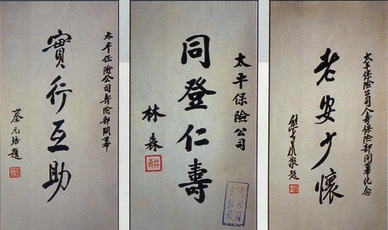 太平保險公司壽險部開幕
實行互助
蔡元培題
太平保險公司
同登仁壽
林森
太平保險公司人壽保險部開幕紀念
老安少懷
敬題